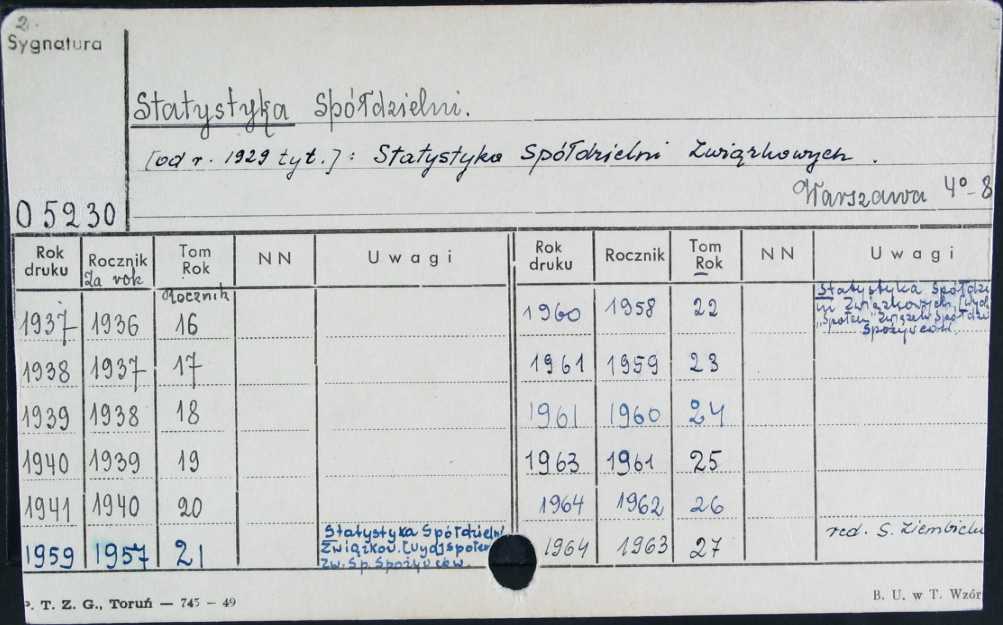 2.
Sygnatura
Statystyka Spółdzielni.
[od r. 1929 tyt.]: Statystyka Spółdzielni Związkowych.
Warszawa 4°-8
05230
Rok druku Rocznik Za rok Tom Rok Rocznik NN Uwagi Rok druku Rocznik Tom Rok NN Uwagi
1937 1936 16 1960 1958 22 Statystyka Spółdzi
Związkowych [wyd]
"Społem" Związek Spółdzi
Spożywców.
1938 1937 17 1961 1959 23
1939 1938 18 1961 1960 24
1940 1939 19 1963 1961 25
1941 1940 20 1964 1962 26
1959 1957 21 Statystyka Spółdzielni
Związkow. [Wyd] Społem
Zw. Sp. Spożywców.
1964 1963 27 red. S.
P. T. Z. G., Toruń — 745 — 49
B. U. w T. Wzór